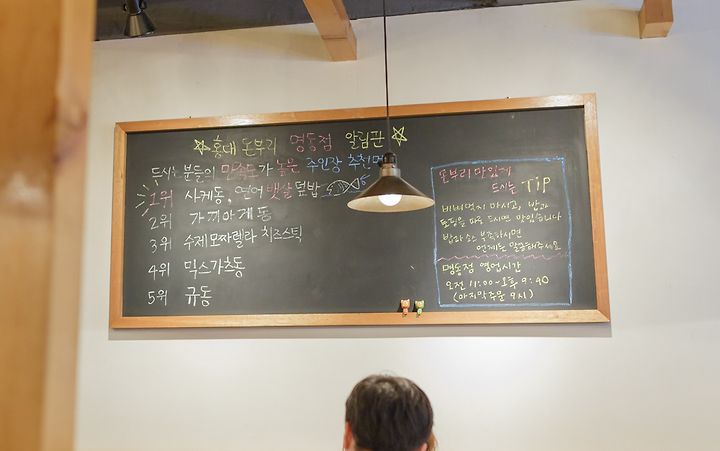 홍대 돈부리 명동점 알림판
드시는 분들의 만족도가 높은 주인장 추천메
1위 사케동, 연어 뱃살덮밥
2위 가끼아게동
3위 수제모짜렐라 치즈스틱
4위 믹스가츠동
5위 규동
돈부리 맛있게
드시는 TIP
비벼먹지 마시고, 밥과
토핑을 따로 드시면 맛있습니다
밥과 소스 부족하시면
언제든 말씀해주세요
명동점 영업시간
오전 11:00~오후 9:40
(마지막주문 9시)